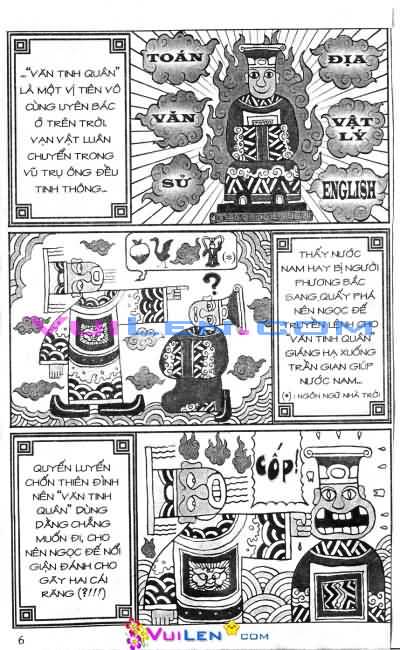 ..."VĂN TINH QUÂN"
LÀ MỘT VỊ TIÊN VÔ
CÙNG UYÊN BÁC
Ở TRÊN TRỜI.
VẠN VẬT LUÂN
CHUYỂN TRONG
VŨ TRỤ ÔNG ĐỀU
TINH THÔNG...
TOÁN
ĐỊA
VĂN
VẬT
LÝ
SỬ
ENGLISH
(*)
?
THẤY NƯỚC
NAM HAY BỊ NGƯỜI
PHƯƠNG BẮC
SANG QUẤY PHÁ
NÊN NGỌC ĐẾ
TRUYỀN LỆNH CHO
VĂN TINH QUÂN
GIÁNG HẠ XUỐNG
TRẦN GIAN GIÚP
NƯỚC NAM...
(*) : NGÔN NGỮ NHÀ TRỜI
VuiLen.com
QUYẾN LUYẾN
CHỐN THIÊN ĐÌNH
NÊN "VĂN TINH
QUÂN" DÙNG
DẰNG CHẲNG
MUỐN ĐI, CHO
NÊN NGỌC ĐẾ NỔI
GIẬN ĐÁNH CHO
GÃY HAI CÁI
RĂNG (?!!!)
CỐP!
6
VuiLen.com